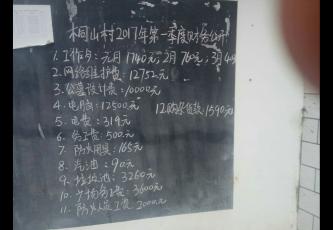 桐山村2017年第一季度财务公开
1.工作歺：元月1740元；2月760元；3月4
2.网络维护费：12752元
3.公墓设计费：10000元
4.电脑：12500元
12.购杂货款：1590元
5.电费：319元
6.务工费：500元
7.防火用具：165元
8.汽油：90元
9.垃圾池：3260元
10.广场务工费：3600元
11.防火人员工资：2000元